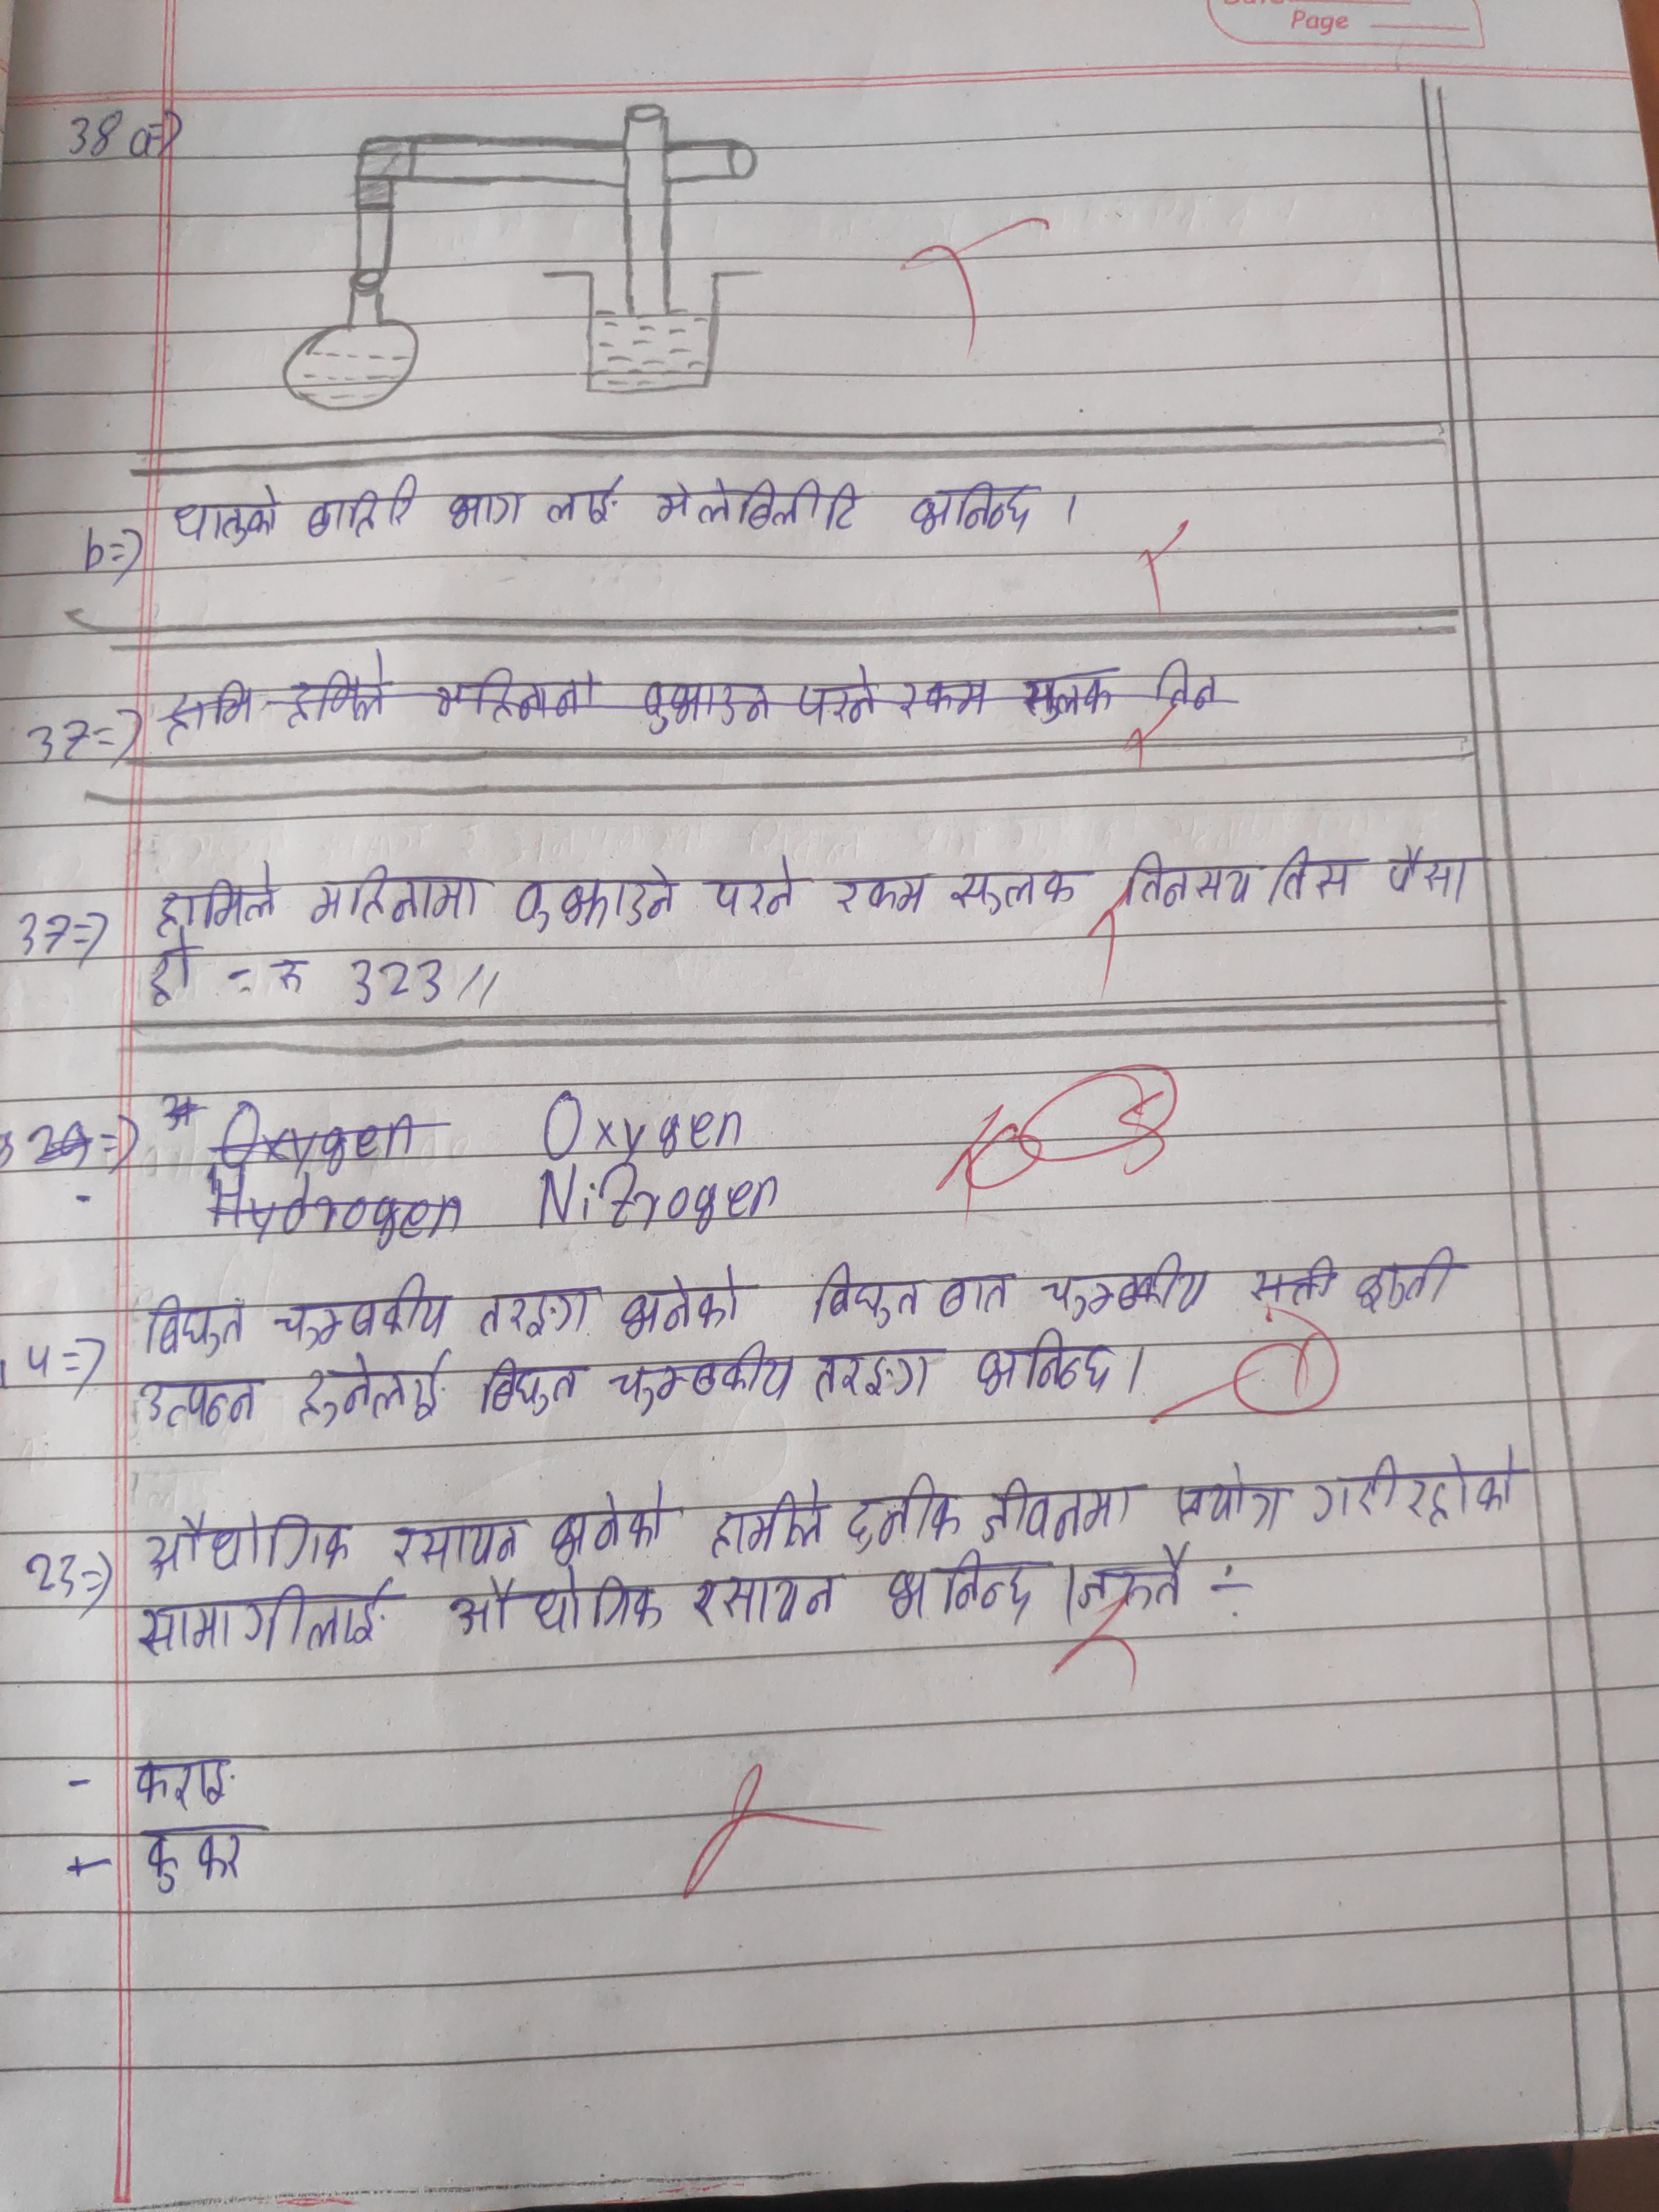 Page
38 a=>
b=> धातुको बाहिरि भाग लाई मेलेबिलीटि भनिन्छ ।
37=> हामि हामिले महिनाना बुझाउन परने रकम सुलक तिन
37=> हामिले महिनामा बुझाउने परने रकम सुलक तिनसय तिस पैसा
हो = रु 323 //
Oxygen Oxygen
- Hydrogen Nitrogen
14=> बिघुत चुम्बकीय तरङ्ग भनेको बिघुत बात चुम्बकीय सत्ती
उत्पन्न हुनेलाई बिघुत चुम्बकीय तरङ्ग भनिन्छ ।
23=> औधोगिक रसायन भनेको हामीले दनीक जीवनमा प्रयोग गरी रहोको
सामागीलाई औधोगिक रसायन भनिन्छ । जस्तै ÷
- कराइ
- कुकर